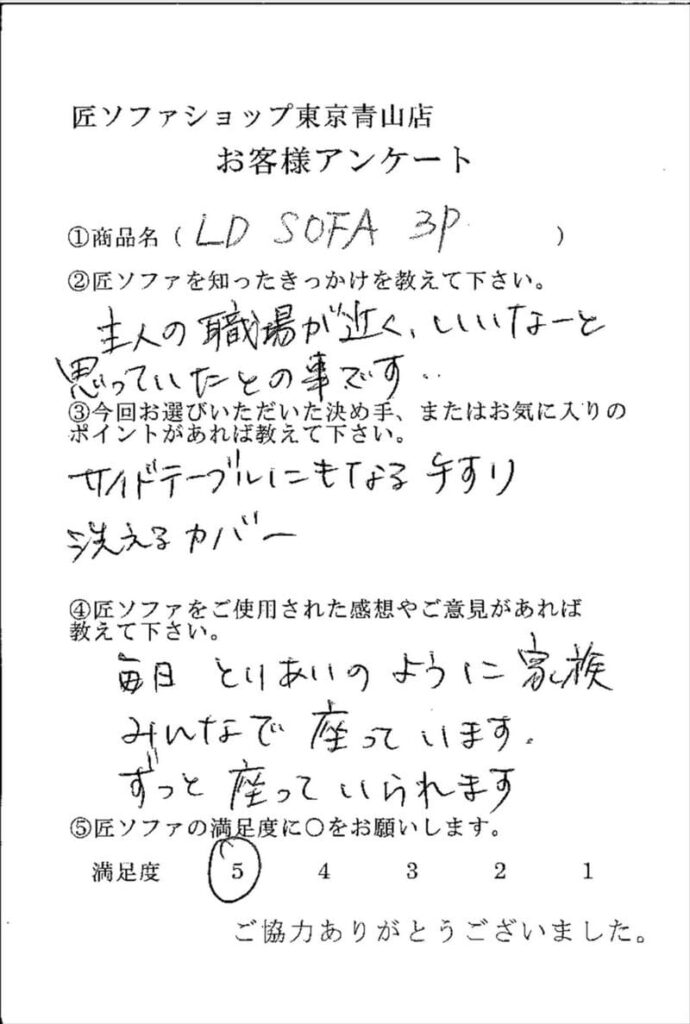 匠ソファショップ東京青山店
お客様アンケート
①商品名（ LD SOFA 3P ）
②匠ソファを知ったきっかけを教えて下さい。
主人の職場が近く、いいなーと
思っていたとの事です..
③今回お選びいただいた決め手、またはお気に入りの
ポイントがあれば教えて下さい。
サイドテーブルにもなる手すり
洗えるカバー
④匠ソファをご使用された感想やご意見があれば
教えて下さい。
毎日 とりあいのように家族
みんなで座っています.
ずっと座っていられます
⑤匠ソファの満足度に〇をお願いします。
満足度 5 4 3 2 1
ご協力ありがとうございました。